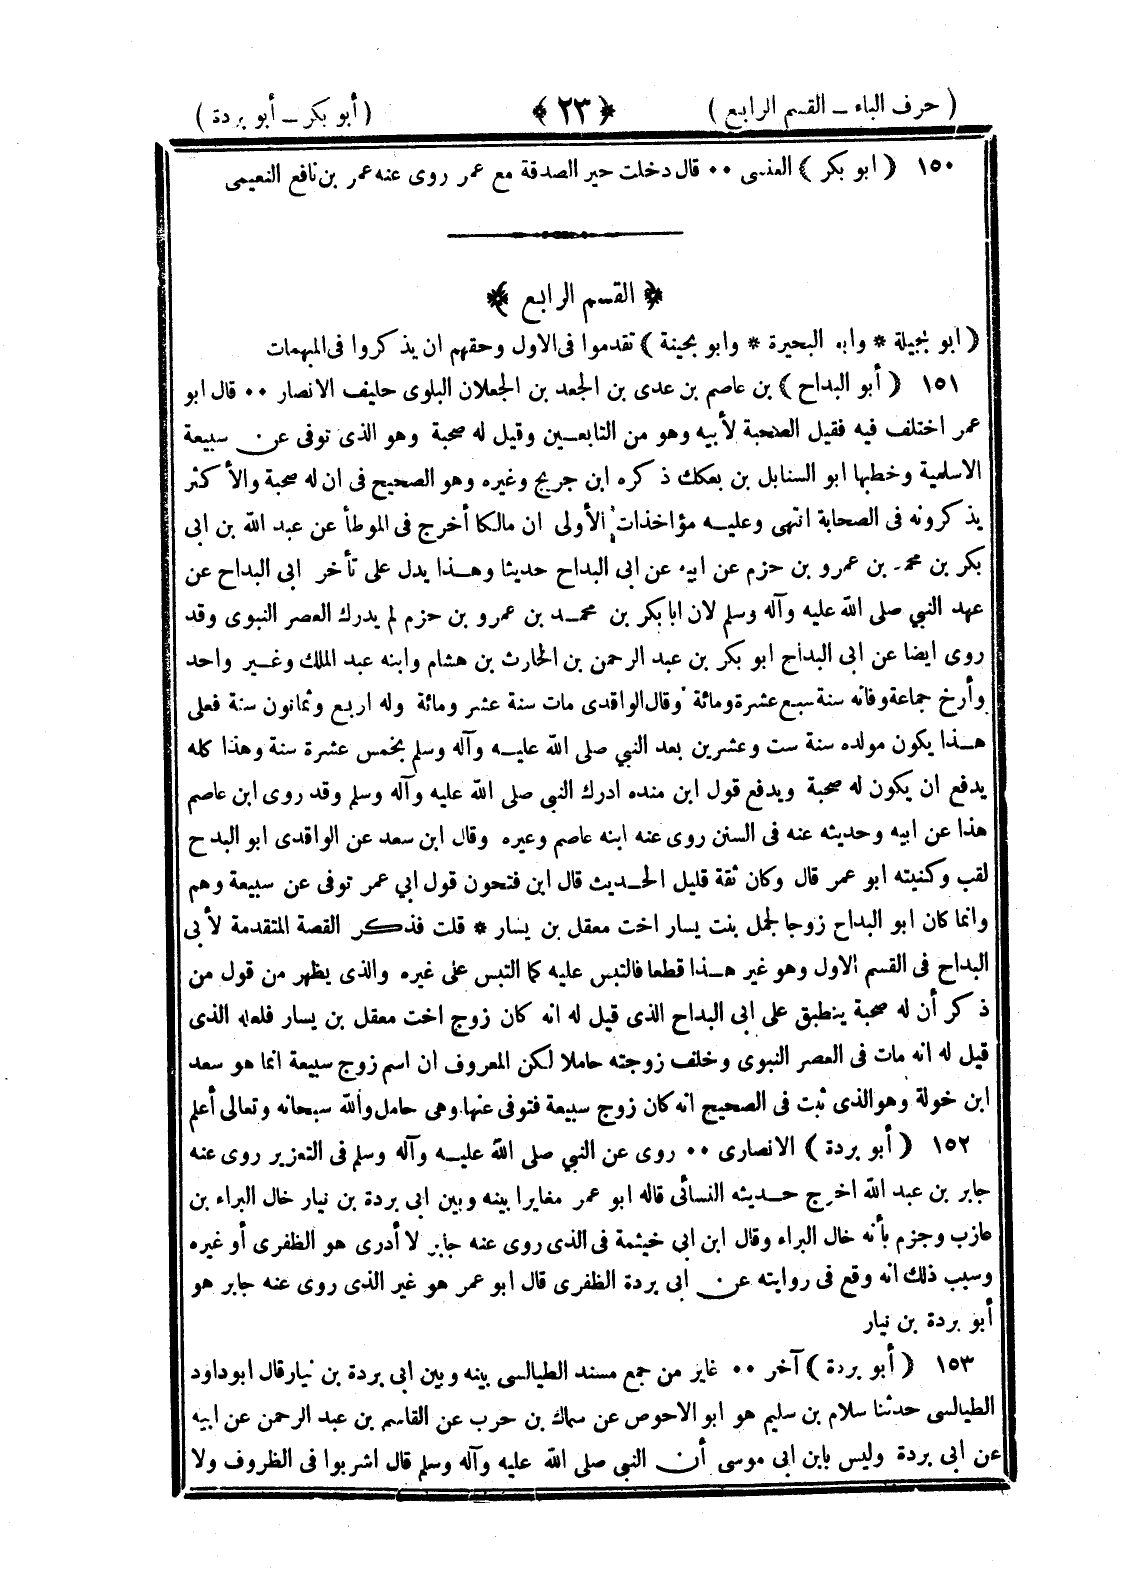 ( حرف الباء ــ القسم الرابع )
﴿ ٢٣ ﴾
( أبو بكر ــ أبو بردة )
١٥٠ ( ابو بكر ) العنسى ٠٠ قال دخلت حير الصدقة مع عمر روى عنه عمر بن نافع النعيمى
﴿ القسم الرابع ﴾
( ابو بجيلة * وابو البحيرة * وابو بحينة ) تقدموا فى الاول وحقهم ان يذكروا فى المبهمات
١٥١ ( أبو البداح ) بن عاصم بن عدى بن الجعد بن العجلان البلوى حليف الانصار ٠٠ قال ابو
عمر اختلف فيه فقيل الصحبة لأبيه وهو من التابعين وقيل له صحبة وهو الذى توفى عن سبيعة
الاسلمية وخطبها ابو السنابل بن بعكك ذكره ابن جريج وغيره وهو الصحيح فى ان له صحبة والأكثر
يذكرونه فى الصحابة انتهى وعليه مؤاخذات الأولى ان مالكا أخرج فى الموطأ عن عبد الله بن ابى
بكر بن محمد بن عمرو بن حزم عن ابيه عن ابى البداح حديثا وهذا يدل على تأخر ابى البداح عن
عهد النبي صلى الله عليه وآله وسلم لان ابا بكر بن محمد بن عمرو بن حزم لم يدرك العصر النبوى وقد
روى ايضا عن ابى البداح ابو بكر بن عبد الرحمن بن الحارث بن هشام وابنه عبد الملك وغير واحد
وأرخ جماعة وفاته سنة سبع عشرة ومائة وقال الواقدى مات سنة عشر ومائة وله اربع وثمانون سنة فعلى
هذا يكون مولده سنة ست وعشرين بعد النبي صلى الله عليه وآله وسلم بخمس عشرة سنة وهذا كله
يدفع ان يكون له صحبة ويدفع قول ابن منده ادرك النبى صلى الله عليه وآله وسلم وقد روى ابن عاصم
هذا عن ابيه وحديثه عنه فى السنن روى عنه ابنه عاصم وغيره وقال ابن سعد عن الواقدى ابو البدح
لقب وكنيته ابو عمر قال وكان ثقة قليل الحديث قال ابن فتحون قول ابي عمر توفى عن سبيعة وهم
وانما كان ابو البداح زوجا لجمل بنت يسار اخت معقل بن يسار * قلت فذكر القصة المتقدمة لأبى
البداح فى القسم الاول وهو غير هذا قطعا فالتبس عليه كما التبس على غيره والذى يظهر من قول من
ذكر أن له صحبة ينطبق على ابى البداح الذى قيل له انه كان زوج اخت معقل بن يسار فلعله الذى
قيل له انه مات فى العصر النبوى وخلف زوجته حاملا لكن المعروف ان اسم زوج سبيعة انما هو سعد
ابن خولة وهو الذى ثبت فى الصحيح انه كان زوج سبيعة فتوفى عنها وهى حامل والله سبحانه وتعالى أعلم
١٥٢ ( أبو بردة ) الانصارى ٠٠ روى عن النبي صلى الله عليه وآله وسلم فى التعزير روى عنه
جابر بن عبد الله اخرج حديثه النسائى قاله ابو عمر مغايرا بينه وبين ابى بردة بن نيار خال البراء بن
عازب وجزم بأنه خال البراء وقال ابن ابى خيثمة فى الذى روى عنه جابر لا أدرى هو الظفرى أو غيره
وسبب ذلك انه وقع فى روايته عن ابى بردة الظفرى قال ابو عمر هو غير الذى روى عنه جابر هو
أبو بردة بن نيار
١٥٣ ( أبو بردة ) آخر ٠٠ غاير من جمع مسند الطيالسى بينه وبين ابى بردة بن نيار قال ابوداود
الطيالسى حدثنا سلام بن سليم هو ابو الاحوص عن سماك بن حرب عن القاسم بن عبد الرحمن عن ابيه
عن ابى بردة وليس بابن ابى موسى أن النبى صلى الله عليه وآله وسلم قال اشربوا فى الظروف ولا